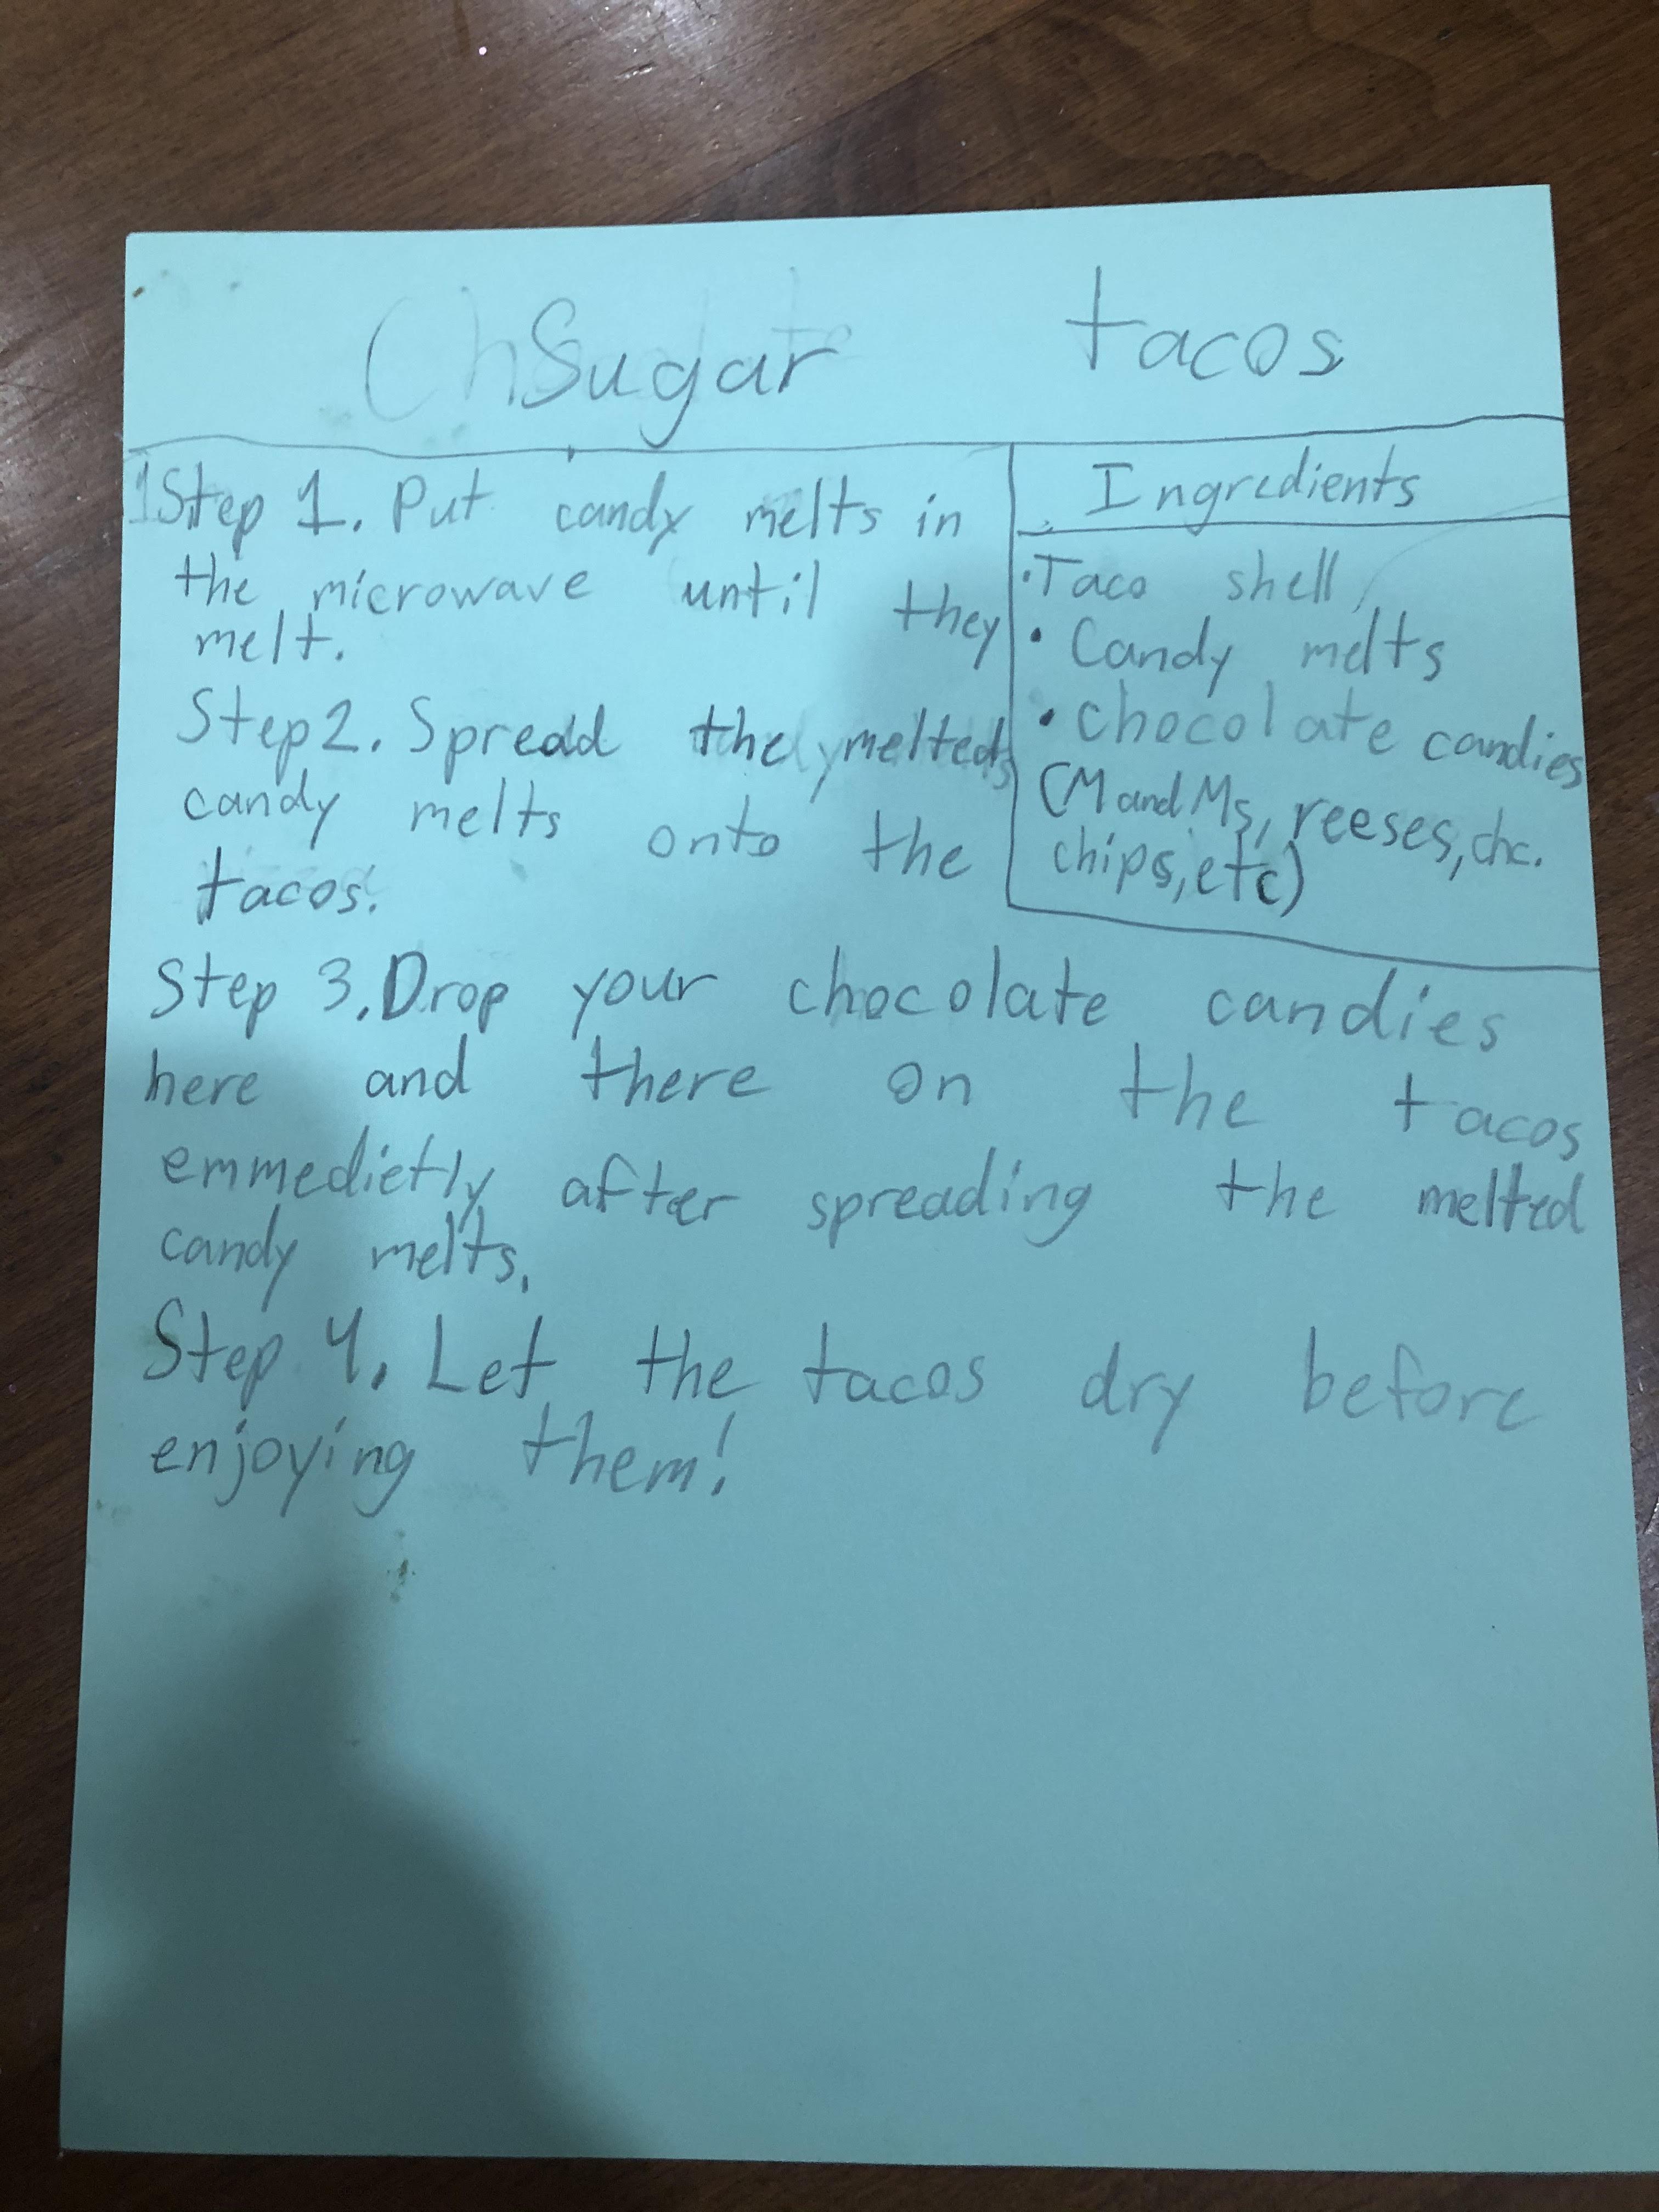 Sugar tacos
Step 1. Put candy melts in
the microwave until they
melt.
Step 2. Spread the melted
candy melts onto the
tacos.
Ingredients
• Taco shell
• Candy melts
• Chocolate candies
(M and Ms, reeses, choc.
chips, etc)
Step 3. Drop your chocolate candies
here and there on the tacos
emmedietly after spreading the melted
candy melts.
Step 4. Let the tacos dry before
enjoying them!